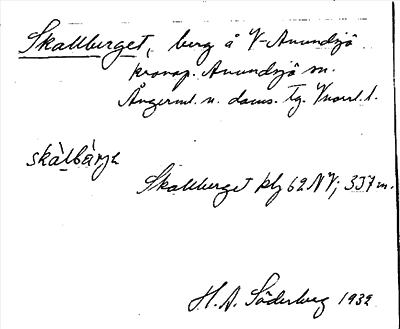 Skallberget, berg å V-Anundsjö
kronop. Anundsjö sn.
Ångerml. n. doms. tg. Vnorrl. l.
skàlbárjɛ
Skallberget kbl 62 NV; 357 m.
H. A. Söderberg 1932